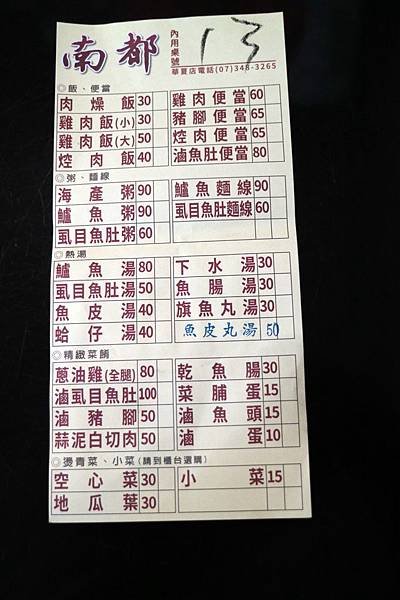 南都 內用桌號 13
華夏店電話(07)348-3265
◎飯、便當
肉燥飯 30 雞肉便當 60
雞肉飯(小) 30 豬腳便當 65
雞肉飯(大) 50 焢肉便當 65
焢肉飯 40 滷魚肚便當 80
◎粥、麵線
海產粥 90 鱸魚麵線 90
鱸魚粥 90 虱目魚肚麵線 60
虱目魚肚粥 60
◎熱湯
鱸魚湯 80 下水湯 30
虱目魚肚湯 50 魚腸湯 30
魚皮湯 40 旗魚丸湯 30
蛤仔湯 40 魚皮丸湯 50
◎精緻菜餚
蔥油雞(全腿) 80 乾魚腸 30
滷虱目魚肚 100 菜脯蛋 15
滷豬腳 50 滷魚頭 15
蒜泥白切肉 50 滷蛋 10
◎燙青菜、小菜(請到櫃台選購)
空心菜 30 小菜 15
地瓜葉 30